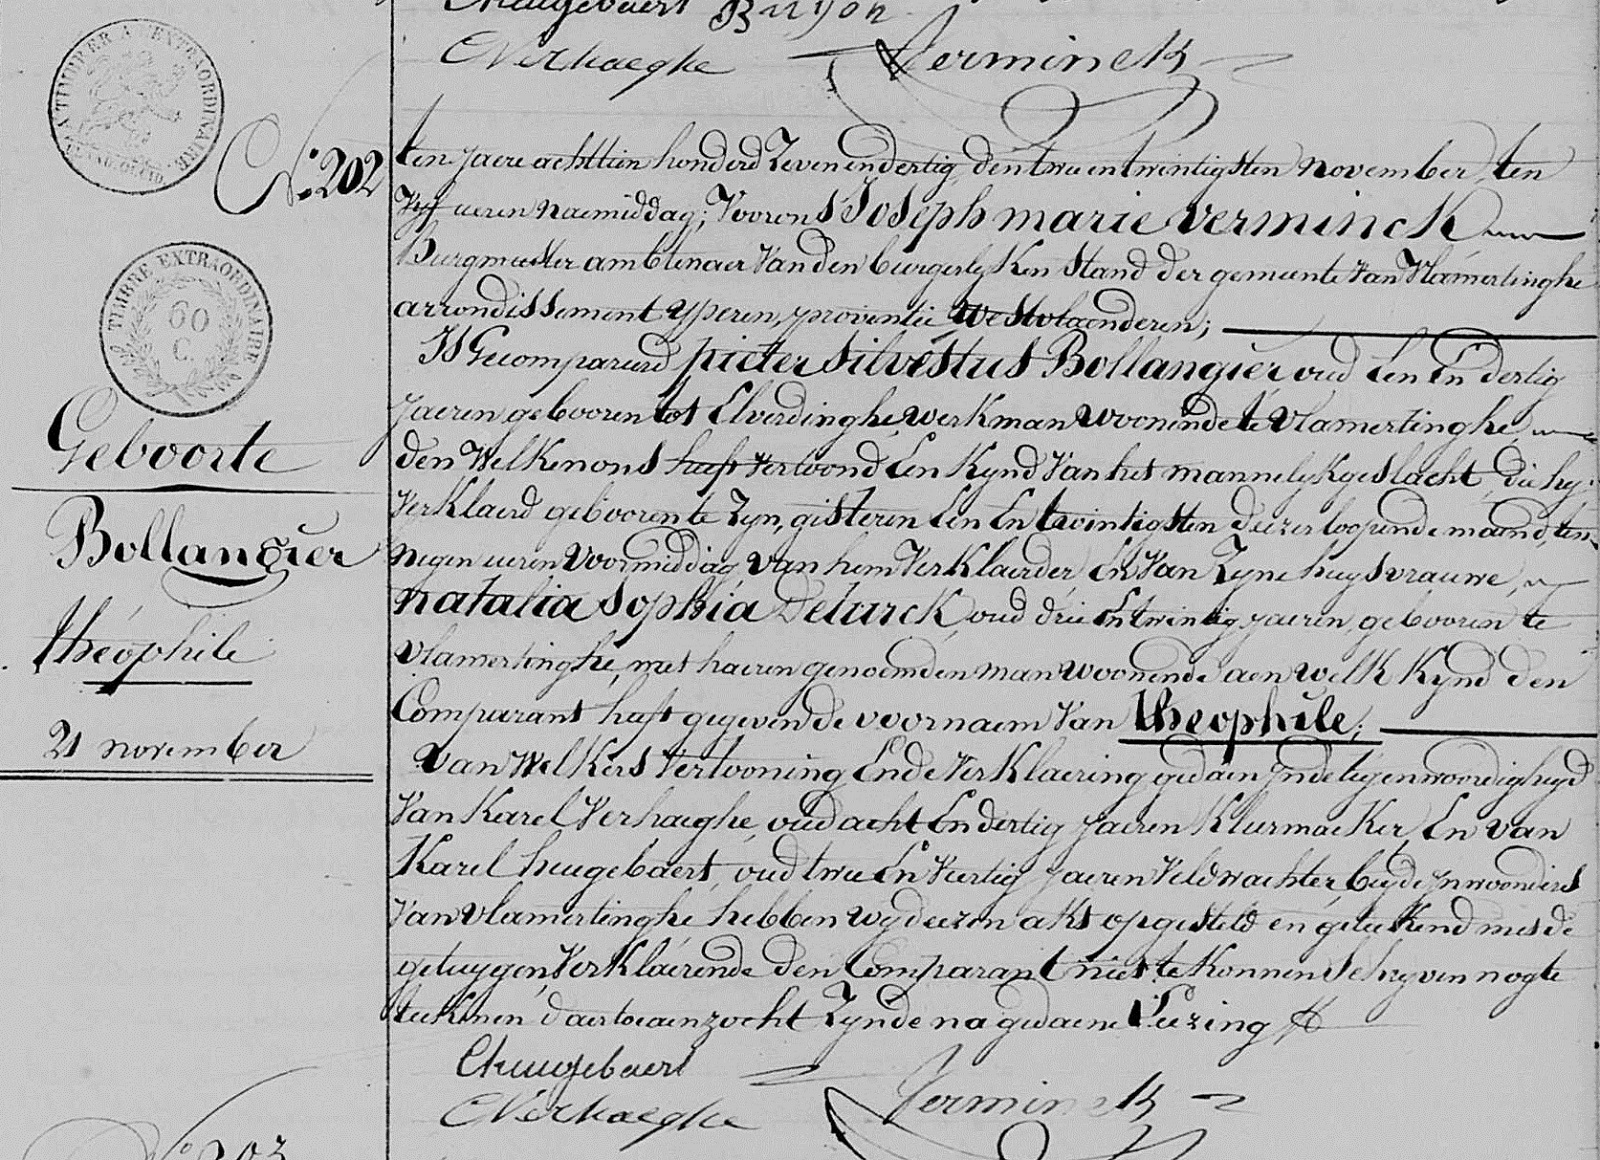 CHeugebaert Bruyon
CVerhaeghe Verminck
TIMBRER A L'EXTRAORDINAIRE
N.º 202
TIMBRE EXTRAORDINAIRE
60
C.
Geboorte
Bollangier
théophile
21 november
ten jaere achttien honderd Zevenendertig, den twee en twintigsten november, ten
Vyf ueren naemiddag; Voorons Joseph marie verminck
Burgmeester ambtenaer Van den burgerlyken stand der gemeente Van Vlamertinghe
arrondissement yperen, provintie Westvlaenderen;
Is Gecompareerd pieter silvéstus Bollangier oud Een En dertig
jaeren gebooren tot Elverdinghe, werkman woonende te Vlamertinghe,
den Welken ons heeft Vertoond Een Kynd Van het mannelyk geslacht, die hy
Verklaerd gebooren te Zyn, gisteren Een En twintigsten deezer loopende maend, ten
negen ueren Voormiddag, van hem Verklaerder En Van Zyne huysvrauwe,
natalia sophia Delurck, oud drie En twintig jaeren, gebooren te
Vlamertinghe, met haeren genoemden man woonende aen welk Kynd den
Comparant heeft gegeven de voornaem Van theophile;
Van Welkers Vertooning Ende Verklaering gedaen ynde tegenwoordigheyd
Van Karel Verhaeghe, oud acht En dertig jaeren Kleermaeker, En van
Karel heugebaert, oud twee En Veertig jaeren Veldwachter, beyde ynwoonders
Van Vlamertinghe hebben wy deezen akt opgesteld en geteekend met de
getuygen, Verklaerende den Comparant niet te konnen Schryven nogte
teekenen daertoe aenzocht Zynde na gedaene Leezing
CHeugebaert
CVerhaeghe Verminck
N.º 203